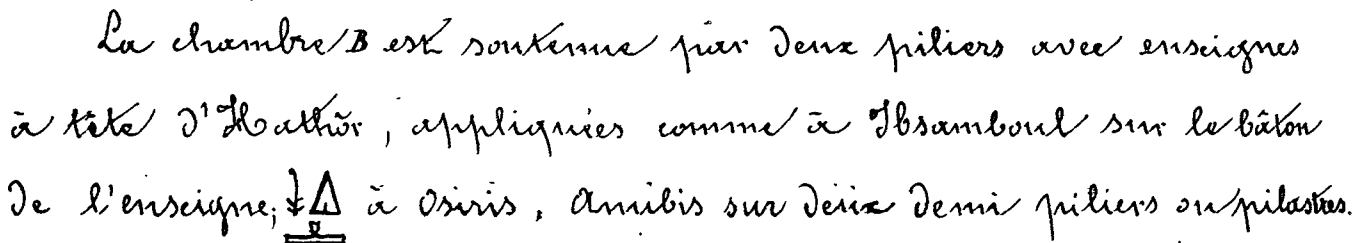 La chambre B est soutenue par deux piliers avec enseignes
à tête d'Hathôr, appliquées comme à Ibsamboul sur le bâton
de l'enseigne, 𓇓𓏙 à Osiris, Anubis sur deux demi piliers ou pilastres.